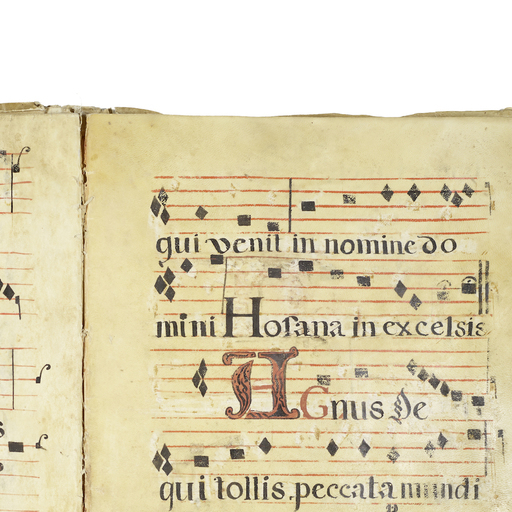 qui venit in nomine do
mini Hosana in excelsis
AGnus De
qui tollis peccata mundi